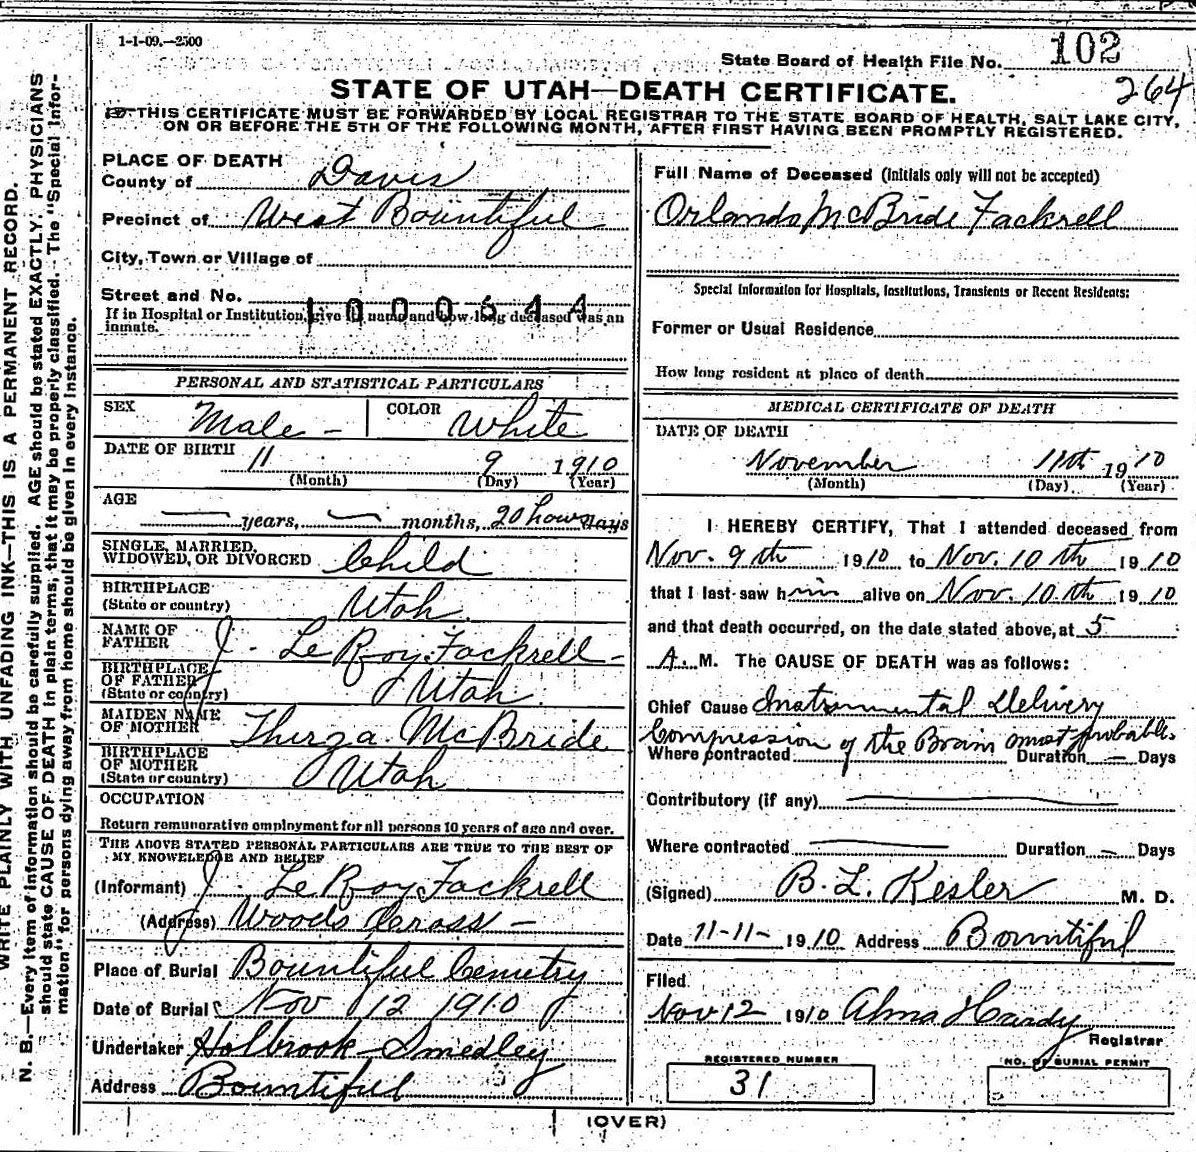 1-1-09.—2500
State Board of Health File No. 102
264
STATE OF UTAH—DEATH CERTIFICATE.
THIS CERTIFICATE MUST BE FORWARDED BY LOCAL REGISTRAR TO THE STATE BOARD OF HEALTH, SALT LAKE CITY,
ON OR BEFORE THE 5TH OF THE FOLLOWING MONTH, AFTER FIRST HAVING BEEN PROMPTLY REGISTERED.
WRITE PLAINLY WITH UNFADING INK—THIS IS A PERMANENT RECORD.
N. B.—Every item of information should be carefully supplied. AGE should be stated EXACTLY. PHYSICIANS
should state CAUSE OF DEATH in plain terms, that it may be properly classified. The "Special Infor-
mation" for persons dying away from home should be given in every instance.
PLACE OF DEATH
County of Davis
Precinct of West Bountiful
City, Town or Village of
Street and No.
1000644
If in Hospital or Institution, give its name and how long deceased was an
inmate.
PERSONAL AND STATISTICAL PARTICULARS
SEX Male – COLOR White
DATE OF BIRTH 11 9 1910
(Month) (Day) (Year)
AGE
— years, — months, 20 hours days
SINGLE, MARRIED,
WIDOWED, OR DIVORCED Child
BIRTHPLACE
(State or country) Utah
NAME OF
FATHER J. LeRoy Fackrell –
BIRTHPLACE
OF FATHER
(State or country) Utah
MAIDEN NAME
OF MOTHER Thirza McBride
BIRTHPLACE
OF MOTHER
(State or country) Utah
OCCUPATION
Return remunerative employment for all persons 10 years of age and over.
THE ABOVE STATED PERSONAL PARTICULARS ARE TRUE TO THE BEST OF
MY KNOWLEDGE AND BELIEF
(Informant) J. LeRoy Fackrell
(Address) Woods Cross –
Place of Burial Bountiful Cemetry
Date of Burial Nov 12 1910
Undertaker Holbrook – Smedley
Address Bountiful
Full Name of Deceased (Initials only will not be accepted)
Orlando McBride Fackrell
Special Information for Hospitals, Institutions, Transients or Recent Residents:
Former or Usual Residence
How long resident at place of death
MEDICAL CERTIFICATE OF DEATH
DATE OF DEATH
November 11th 1910
(Month) (Day) (Year)
I HEREBY CERTIFY, That I attended deceased from
Nov. 9th 1910 to Nov. 10th 1910
that I last saw him alive on Nov. 10th 1910
and that death occurred, on the date stated above, at 5
A. M. The CAUSE OF DEATH was as follows:
Chief Cause Instrumental Delivery
Compression of the Brain most probable.
Where contracted Duration — Days
Contributory (if any) —
Where contracted — Duration — Days
(Signed) B. L. Kesler M. D.
Date 11-11- 1910 Address Bountiful
Filed
Nov 12 1910 Alma Hardy
Registrar
REGISTERED NUMBER
31
NO. OF BURIAL PERMIT
(OVER)